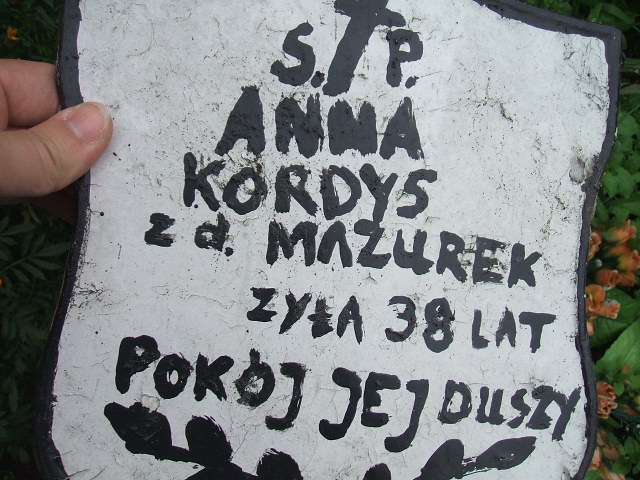 S. P.
ANNA
KORDYS
z d. MAZUREK
ZYŁA 38 LAT
POKÓJ JEJ DUSZY